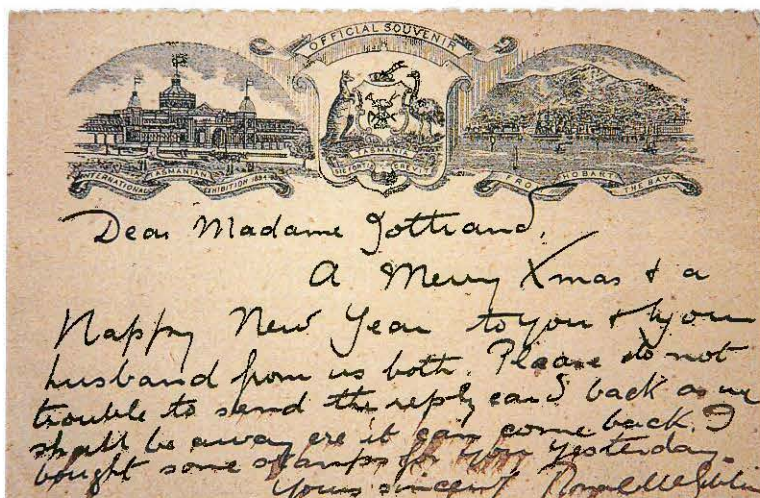 OFFICIAL SOUVENIR
TASMANIA
SIC FORTIS CREVIT
INTERNATIONAL TASMANIAN EXHIBITION
HOBART FROM THE BAY
Dear Madame
A Merry Xmas & a
Happy New Year to you & your
husband from us both. Please do not
trouble to send the reply card back as we
shall be away ere it can come back. I
bought some stamps for you yesterday.
Yours sincerely